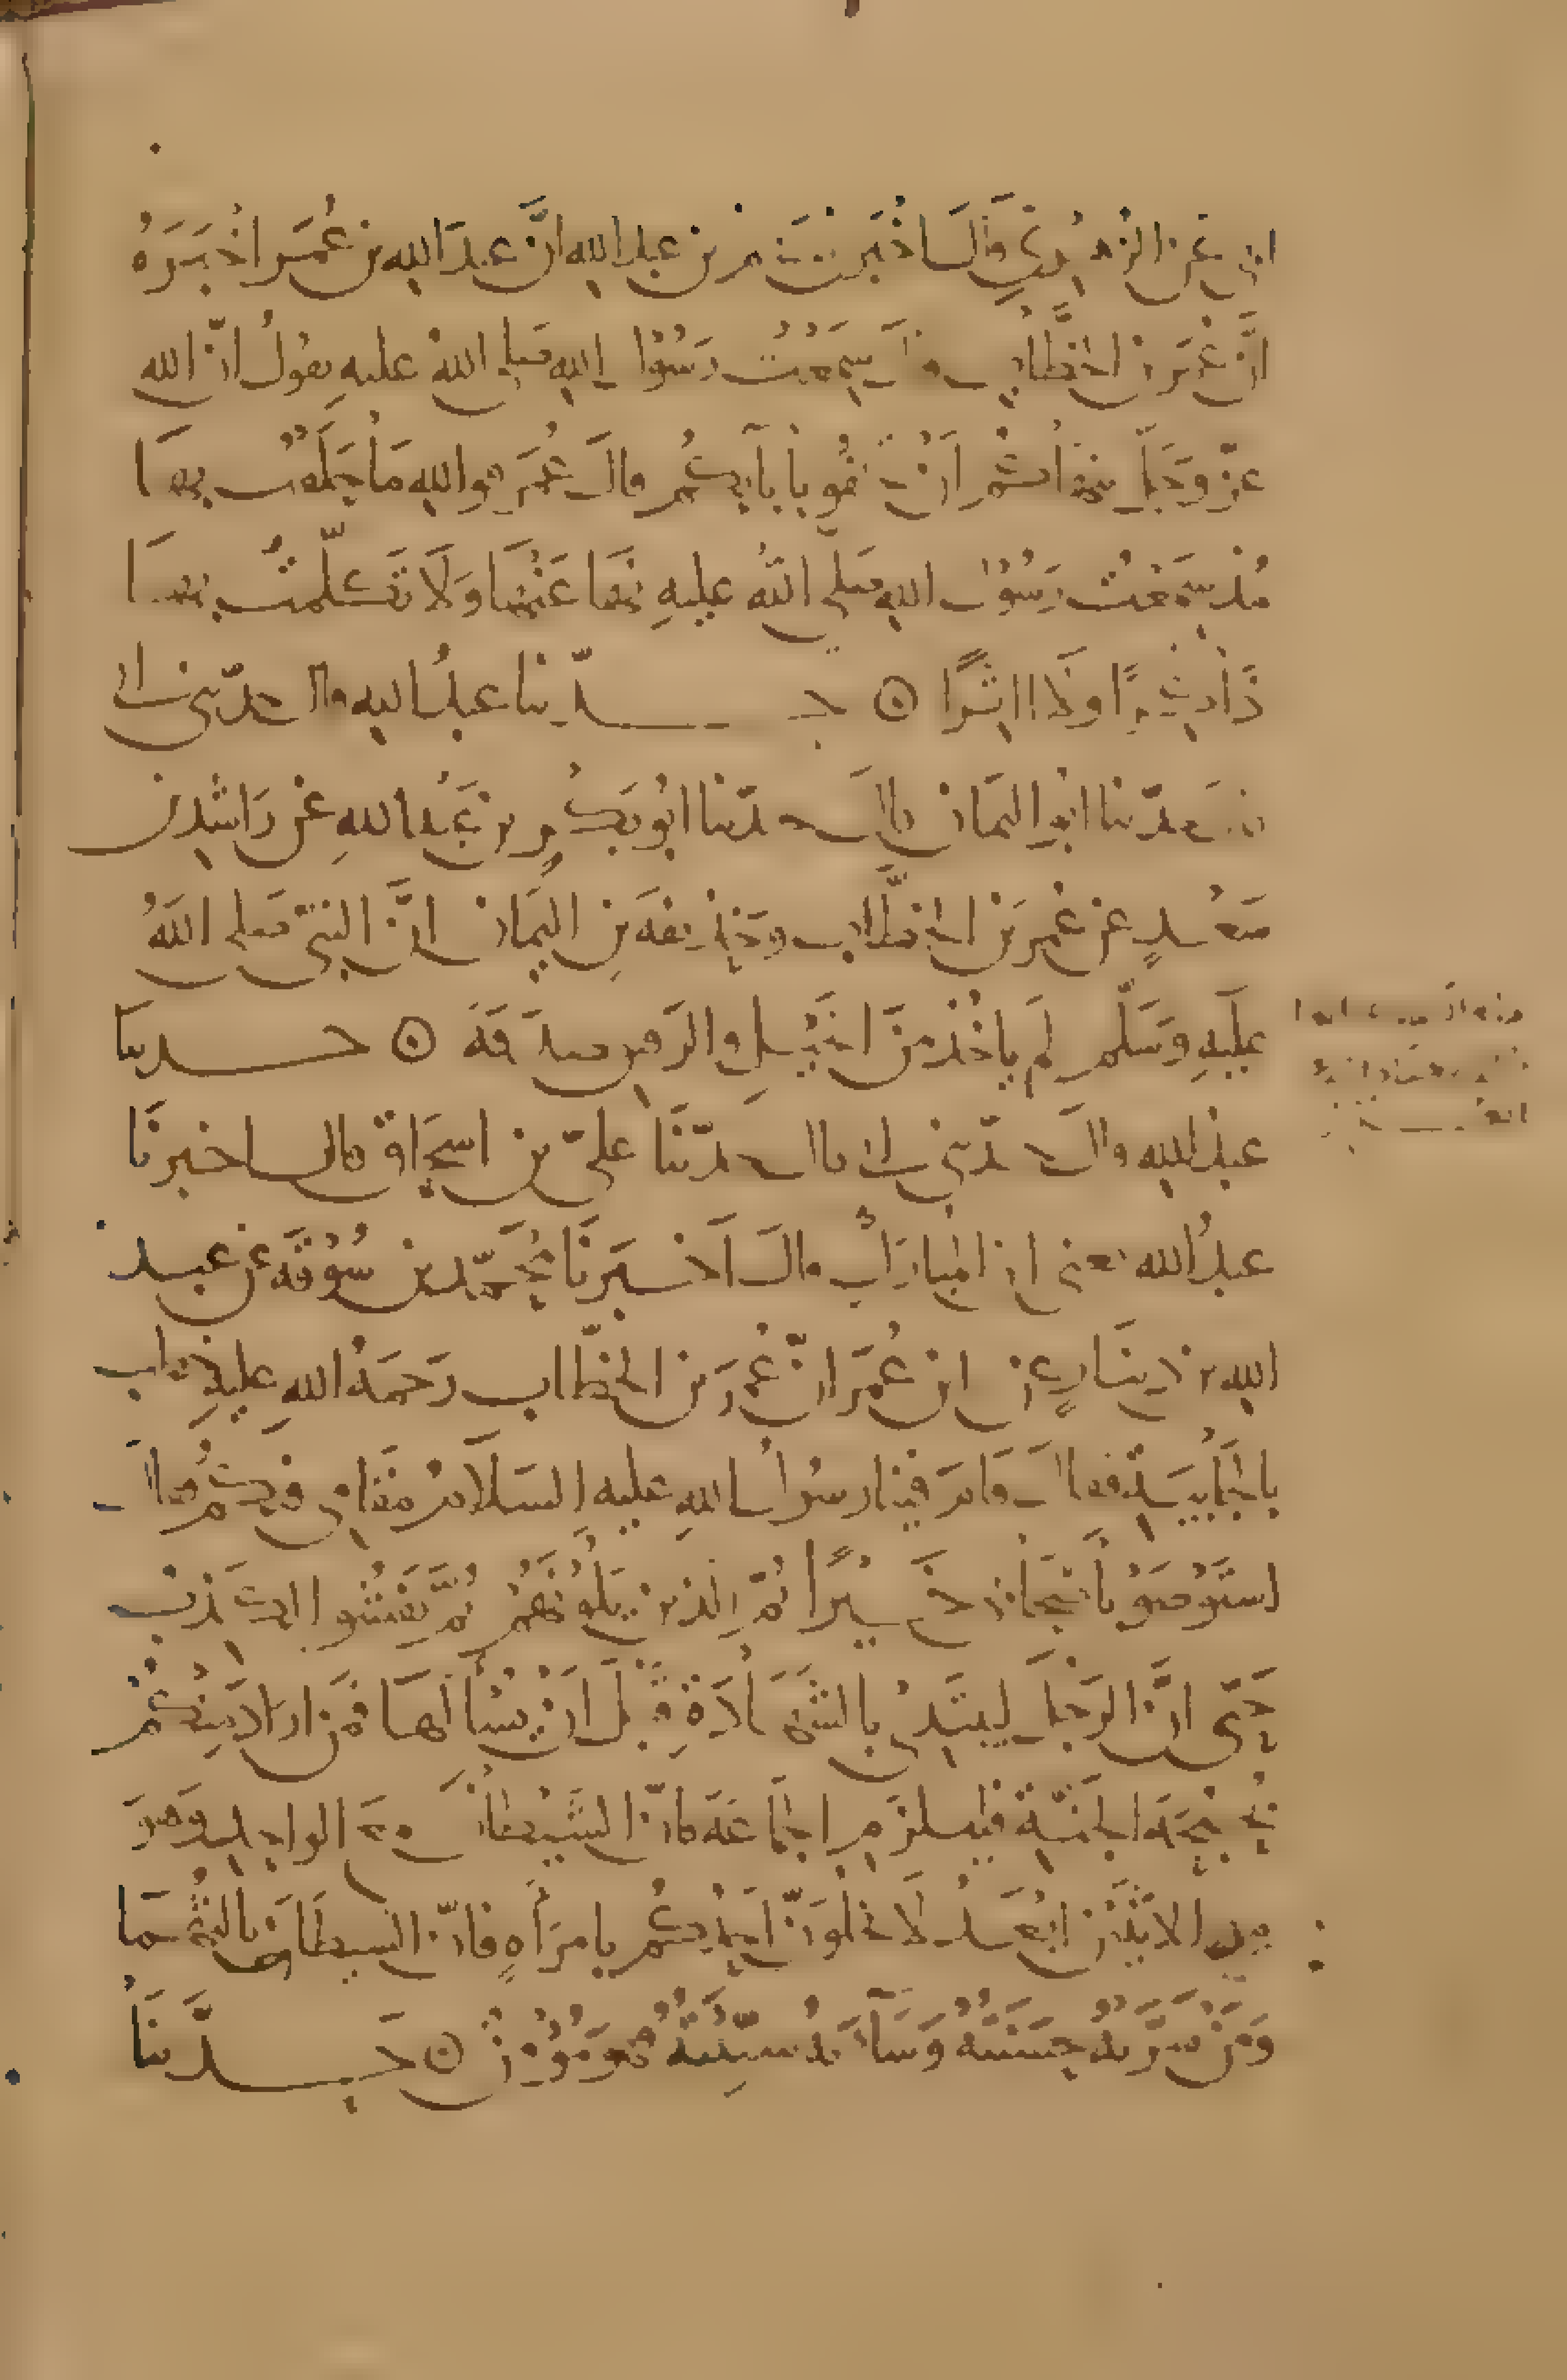 عن الزهري قال اخبرني سالم بن عبد الله انّ عبد الله بن عُمَر اخبَرَهُ
انَّ عُمَر بن الخطاب قال سَمِعْتُ رَسُول الله صلى اللهُ عليهِ يقولُ انّ الله
عزّ وَجَلّ ينهاكُم اَنْ تحلفُوا بآبآيكُم قال عُمَر فوالله مَا حَلَفْت بهَا
مُنذ سَمِعْتُ رَسُول الله صلى اللهُ عليهِ نهَا عَنْهَا وَلَا تَكلّمتُ بهَا
ذَاكِرًا وَلَا اثرًا ⊙ حدّثنا عبدُ الله قال حدّثني ابي
حدّثنا ابو اليمَان قال حدّثنا ابو بَكرٍ بن عَبْد اللهِ عن رَاشد بن
سَعْدٍ عن عُمر بن الخطَّاب وحُذيفَة بنِ اليمَان انَّ النبيّ صلى اللهُ
عليَهِ وَسَلّم لَم ياخُذ منَ الخَيْلِ والرَّقيق صدَقَة ⊙ حدثنَا
عبدُ الله قالَ حدّثني ابي قال حدّثنَا عليّ بن اسحَاق قال اخبرنَا
عبدُ الله يعني ابن المبَارَك قالَ اَخبَرنَا مُحَمّد بن سُوْقَة عَن عبد
الله بن دينَارٍ عن ابن عُمَر انّ عُمَر بن الخطّاب رَحمَةُ اللهِ عليهِ خطب
بالجَابيَةِ فقالَ قامَ فينا رسُولُ اللهِ عليه السَلَامُ مقَامي فيكُم فقالَ
استَوْصُوْ باَصْحَابي خَيْرًا ثمّ الذين يَلُونَهُمْ ثُمَّ يَفْشُوا الكَذبُ
حَتّى انَّ الرَّجُلَ ليبتَدِئُ بالشَهَادَةِ قبْلَ اَنْ يُسْأَلهَا فَمَن ارَادَ مِنكُمْ
بُحْبحَةَ الجَنّةِ فليلزَمِ الجمَاعَةَ فانّ الشَّيْطانَ مَعَ الواحِد وَهوَ
من الاثنَيْن ابْعَدُ لَا يخلوَنّ اَحَدُكُم بامرَأةٍ فانّ الشيطَانَ ثالثُهُمَا
وَمَنْ سَرَّتهُ حَسَنتهُ وَسَآءَتهُ سَيّئتهُ فهوَ مُؤْمِنٌ ⊙ حَدَّثنَا